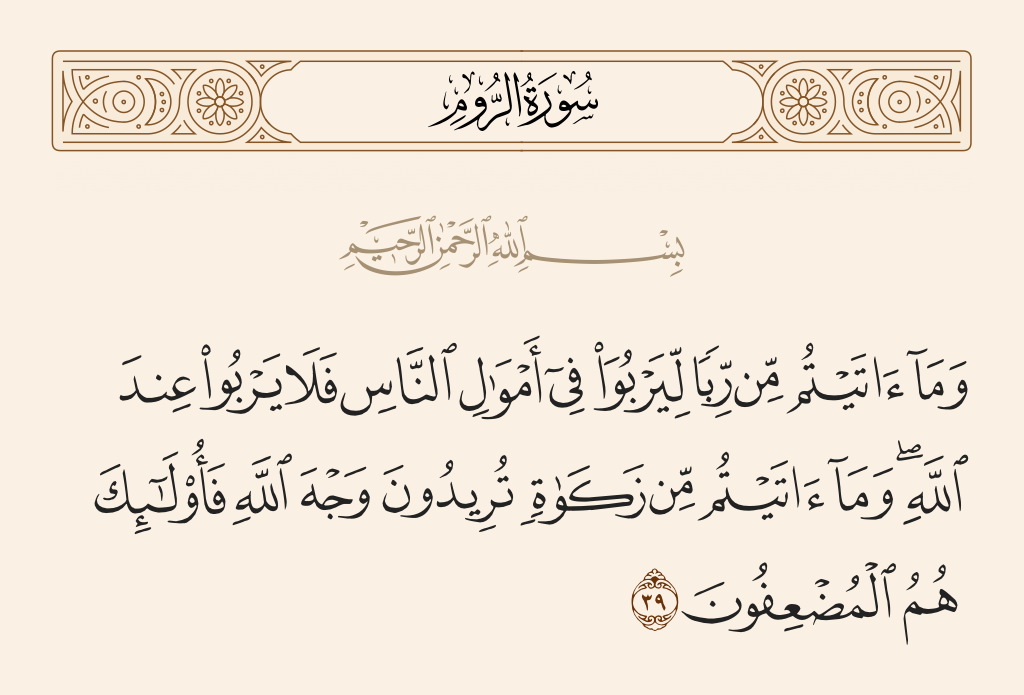 سُورَةُ الرُّومِ
بِسْمِ ٱللَّهِ ٱلرَّحْمَٰنِ ٱلرَّحِيمِ
وَمَآ ءَاتَيْتُم مِّن رِّبًا لِّيَرْبُوَا۟ فِىٓ أَمْوَٰلِ ٱلنَّاسِ فَلَا يَرْبُوا۟ عِندَ
ٱللَّهِ ۖ وَمَآ ءَاتَيْتُم مِّن زَكَوٰةٍ تُرِيدُونَ وَجْهَ ٱللَّهِ فَأُو۟لَٰٓئِكَ
هُمُ ٱلْمُضْعِفُونَ ٣٩